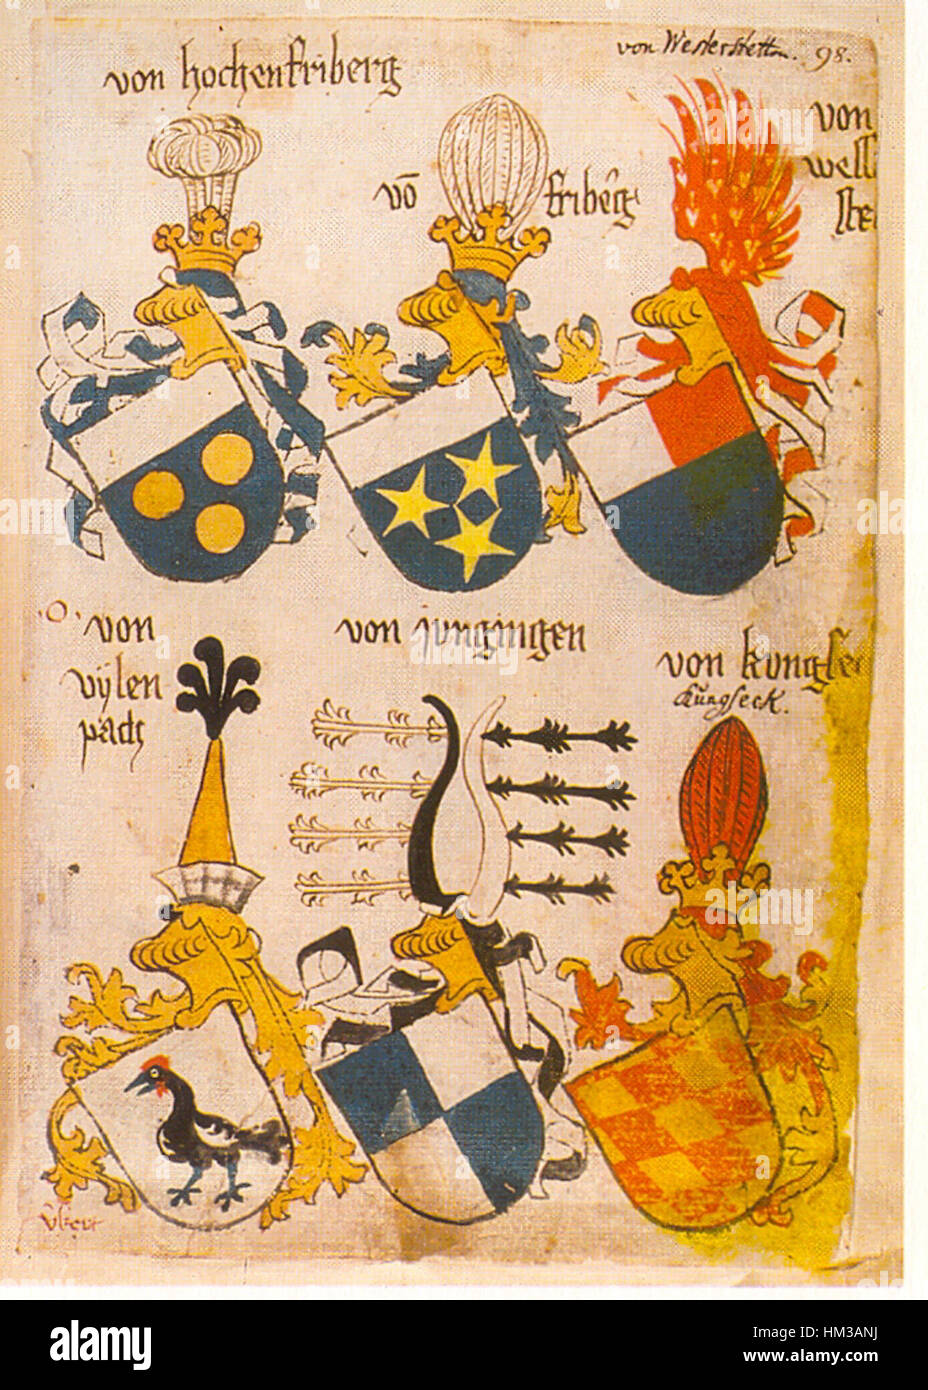 von hochenfriberg
von Westerstetten. 98.
vō friberg
von
well
ste
von
vÿlen
pach
von jungingen
von kungse
Kungseck.
alamy
Image ID: HM3ANJ
www.alamy.com